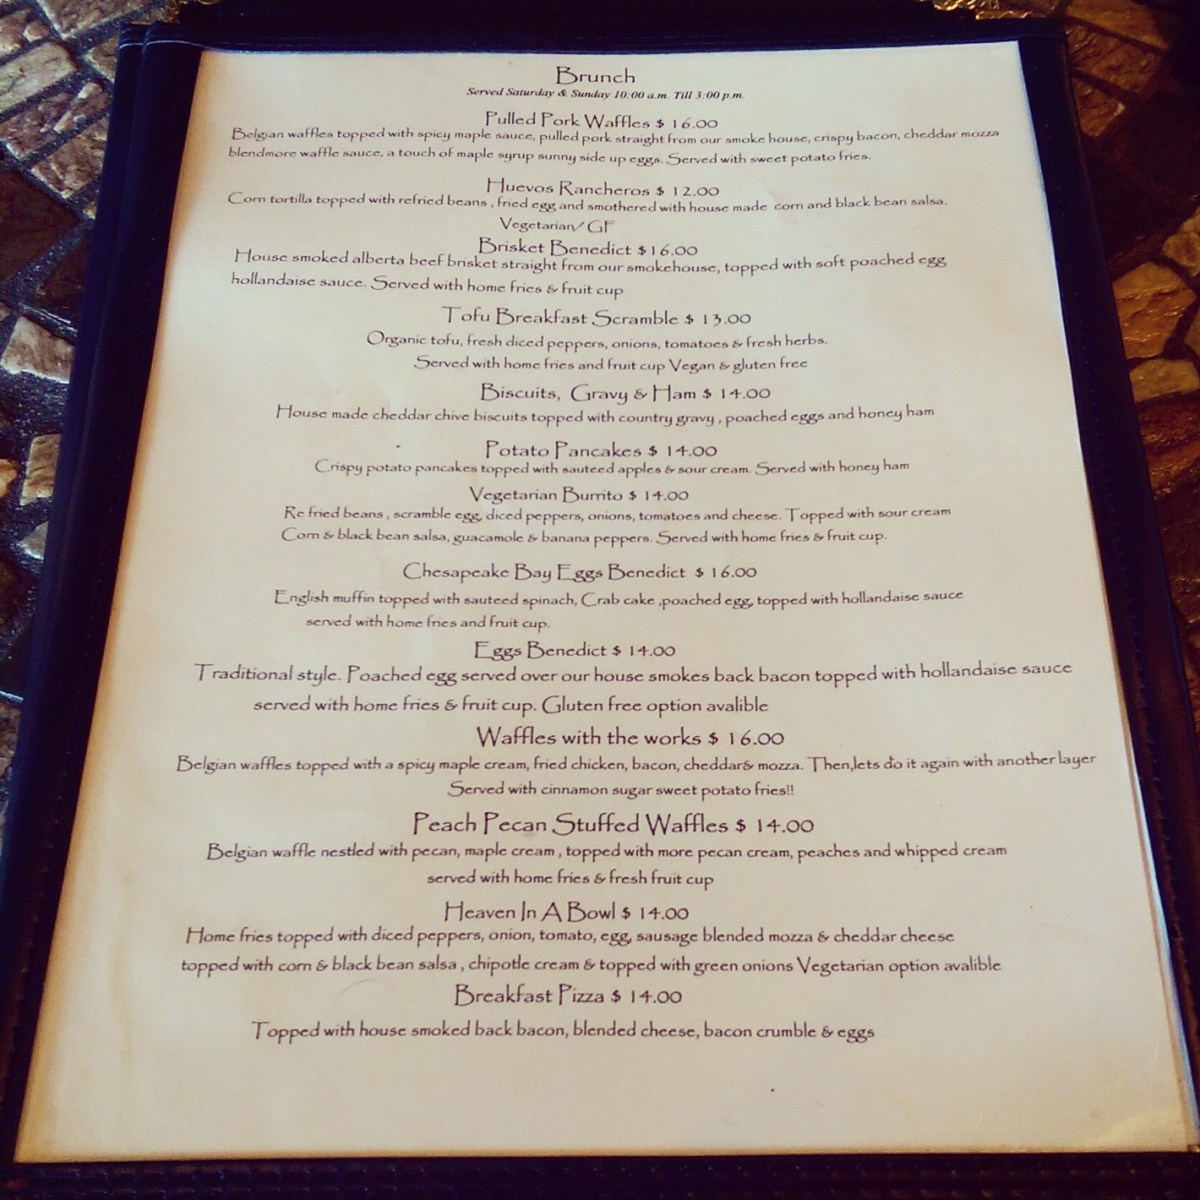 Brunch
Served Saturday & Sunday 10:00 a.m. Till 3:00 p.m.
Pulled Pork Waffles $ 16.00
Belgian waffles topped with spicy maple sauce, pulled pork straight from our smoke house, crispy bacon, cheddar mozza
blendmore waffle sauce, a touch of maple syrup sunny side up eggs. Served with sweet potato fries.
Huevos Rancheros $ 12.00
Corn tortilla topped with refried beans , fried egg and smothered with house made corn and black bean salsa.
Vegetarian/ GF
Brisket Benedict $16.00
House smoked alberta beef brisket straight from our smokehouse, topped with soft poached egg
hollandaise sauce. Served with home fries & fruit cup
Tofu Breakfast Scramble $ 13.00
Organic tofu, fresh diced peppers, onions, tomatoes & fresh herbs.
Served with home fries and fruit cup Vegan & gluten free
Biscuits, Gravy & Ham $ 14.00
House made cheddar chive biscuits topped with country gravy , poached eggs and honey ham
Potato Pancakes $ 14.00
Crispy potato pancakes topped with sauteed apples & sour cream. Served with honey ham
Vegetarian Burrito $ 14.00
Re fried beans , scramble egg, diced peppers, onions, tomatoes and cheese. Topped with sour cream
Corn & black bean salsa, guacamole & banana peppers. Served with home fries & fruit cup.
Chesapeake Bay Eggs Benedict $ 16.00
English muffin topped with sauteed spinach, Crab cake ,poached egg, topped with hollandaise sauce
served with home fries and fruit cup.
Eggs Benedict $ 14.00
Traditional style. Poached egg served over our house smokes back bacon topped with hollandaise sauce
served with home fries & fruit cup. Gluten free option avalible
Waffles with the works $ 16.00
Belgian waffles topped with a spicy maple cream, fried chicken, bacon, cheddar& mozza. Then,lets do it again with another layer
Served with cinnamon sugar sweet potato fries!!
Peach Pecan Stuffed Waffles $ 14.00
Belgian waffle nestled with pecan, maple cream , topped with more pecan cream, peaches and whipped cream
served with home fries & fresh fruit cup
Heaven In A Bowl $ 14.00
Home fries topped with diced peppers, onion, tomato, egg, sausage blended mozza & cheddar cheese
topped with corn & black bean salsa , chipotle cream & topped with green onions Vegetarian option avalible
Breakfast Pizza $ 14.00
Topped with house smoked back bacon, blended cheese, bacon crumble & eggs